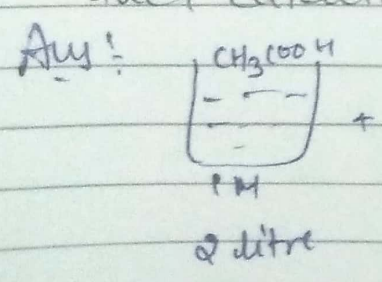 Ans :-
CH3COOH
+
1 M
2 litre